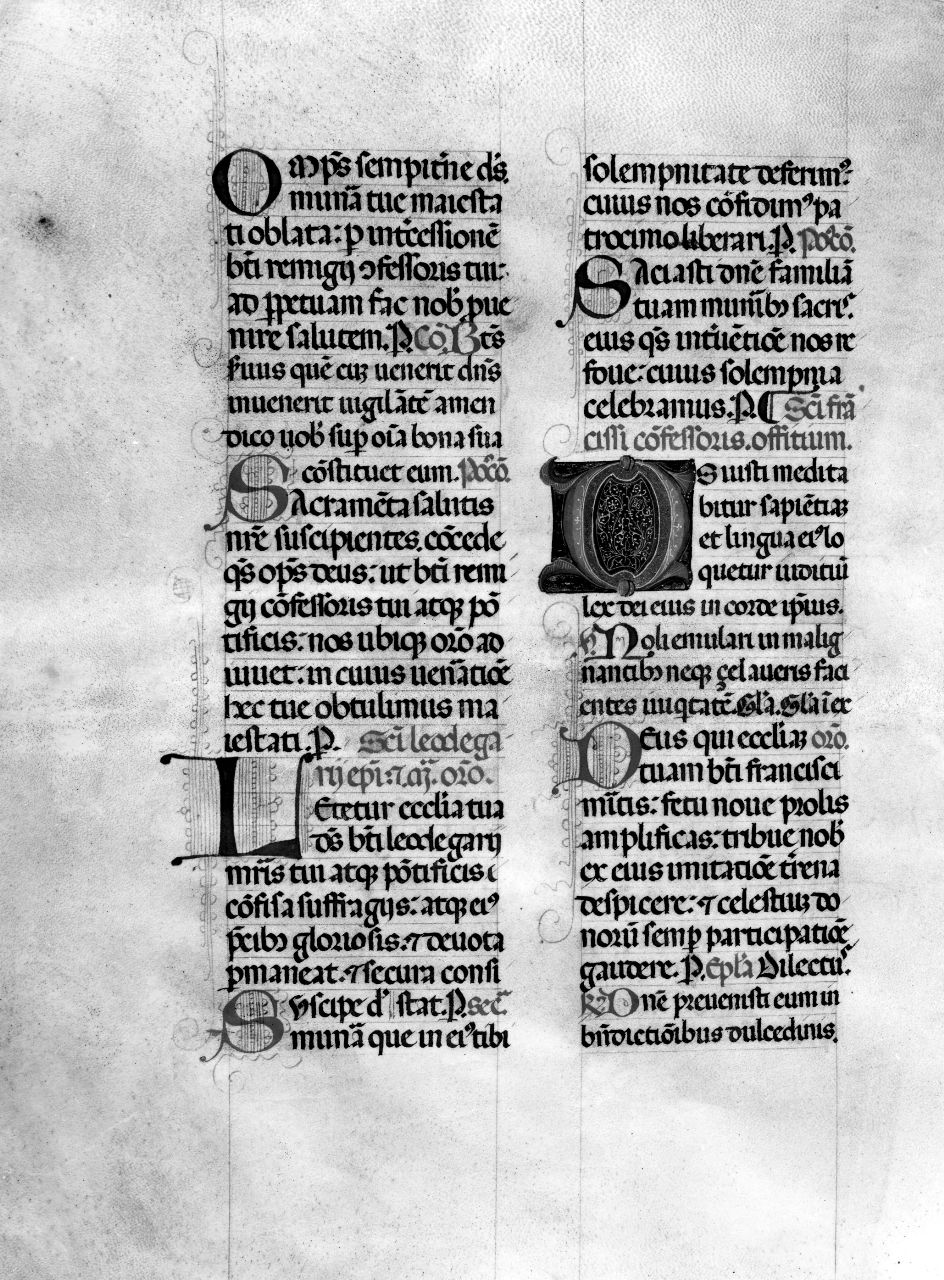 Omps̄ sempit̄ne ds̄.
munā tue maiesta
ti oblata: p intc̄essionē
bt̄i remigij ɔfessoris tui:
ad ꝑpetuam fac nob̓ pue
nire salutem. P. Cō. Bt̄s
s̄uus quē cuȝ uenerit dn̄s
inuenerit uigilātē amen
dico uob̓ suꝑ oīa bona sua
cōstituet eum. Po᷒cō.
Sacramēta salutis
nr̄e suscipientes, cōcede
qs̄ ops̄ deus: ut bt̄i remi
gij cōfessoris tui atqꝫ pō
tificis: nos ubiqꝫ orō ad
iuuet: in cuius uenātiōe
hec tue obtulimus ma
iestati. P. Sc̄i leodega
rij epī: ⁊ m̄. orō.
Letetur eccl̄ia tua
ds̄ bt̄i leodegarij
mr̄is tui atqꝫ pōtificis
cōfisa suffragijs: atqꝫ eiꝰ
p̄cibꝫ gloriosis. ⁊ deuota
ꝑmaneat. ⁊ secura consi
stat. P. sec̄.
Suscipe d̓
munā que in eiꝰ tibi
solempnitate deferimꝰ:
cuius nos cōfidimꝰ pa
trocinio liberari. P. Po᷒cō.
Saciasti dn̄e familiā
tuam munīibꝫ sacrꝭ.
eius qs̄ int̄uētiōe nos re
foue: cuius solempnia
celebramus. P. ¶ Sc̄i frā
cissi cōfessoris. offitium.
Os iusti medita
bitur sapiētiaꝫ
et lingua eiꝰ lo
quetur iuditiū
lex dei eius in corde ip̄ius.
Noli emulari in malig
nantibꝫ neqꝫ çelaueris faci
entes iniqtatē. Gl̄a. Gl̄a ī ex
Deus qui eccl̄iaꝫ orō.
tuam bt̄i francisci
mīt̄is: fetu noue prolis
amplificas: tribue nob̓
ex eius imitatiōe t̄rena
despicere: ⁊ celestiuꝫ do
norū semꝑ participatiōe
gaudere. P. Epl̄a Dilectꝰ.
R̄ Dn̄e preuenisti eum in
bn̄dictiōibus dulcedinis.